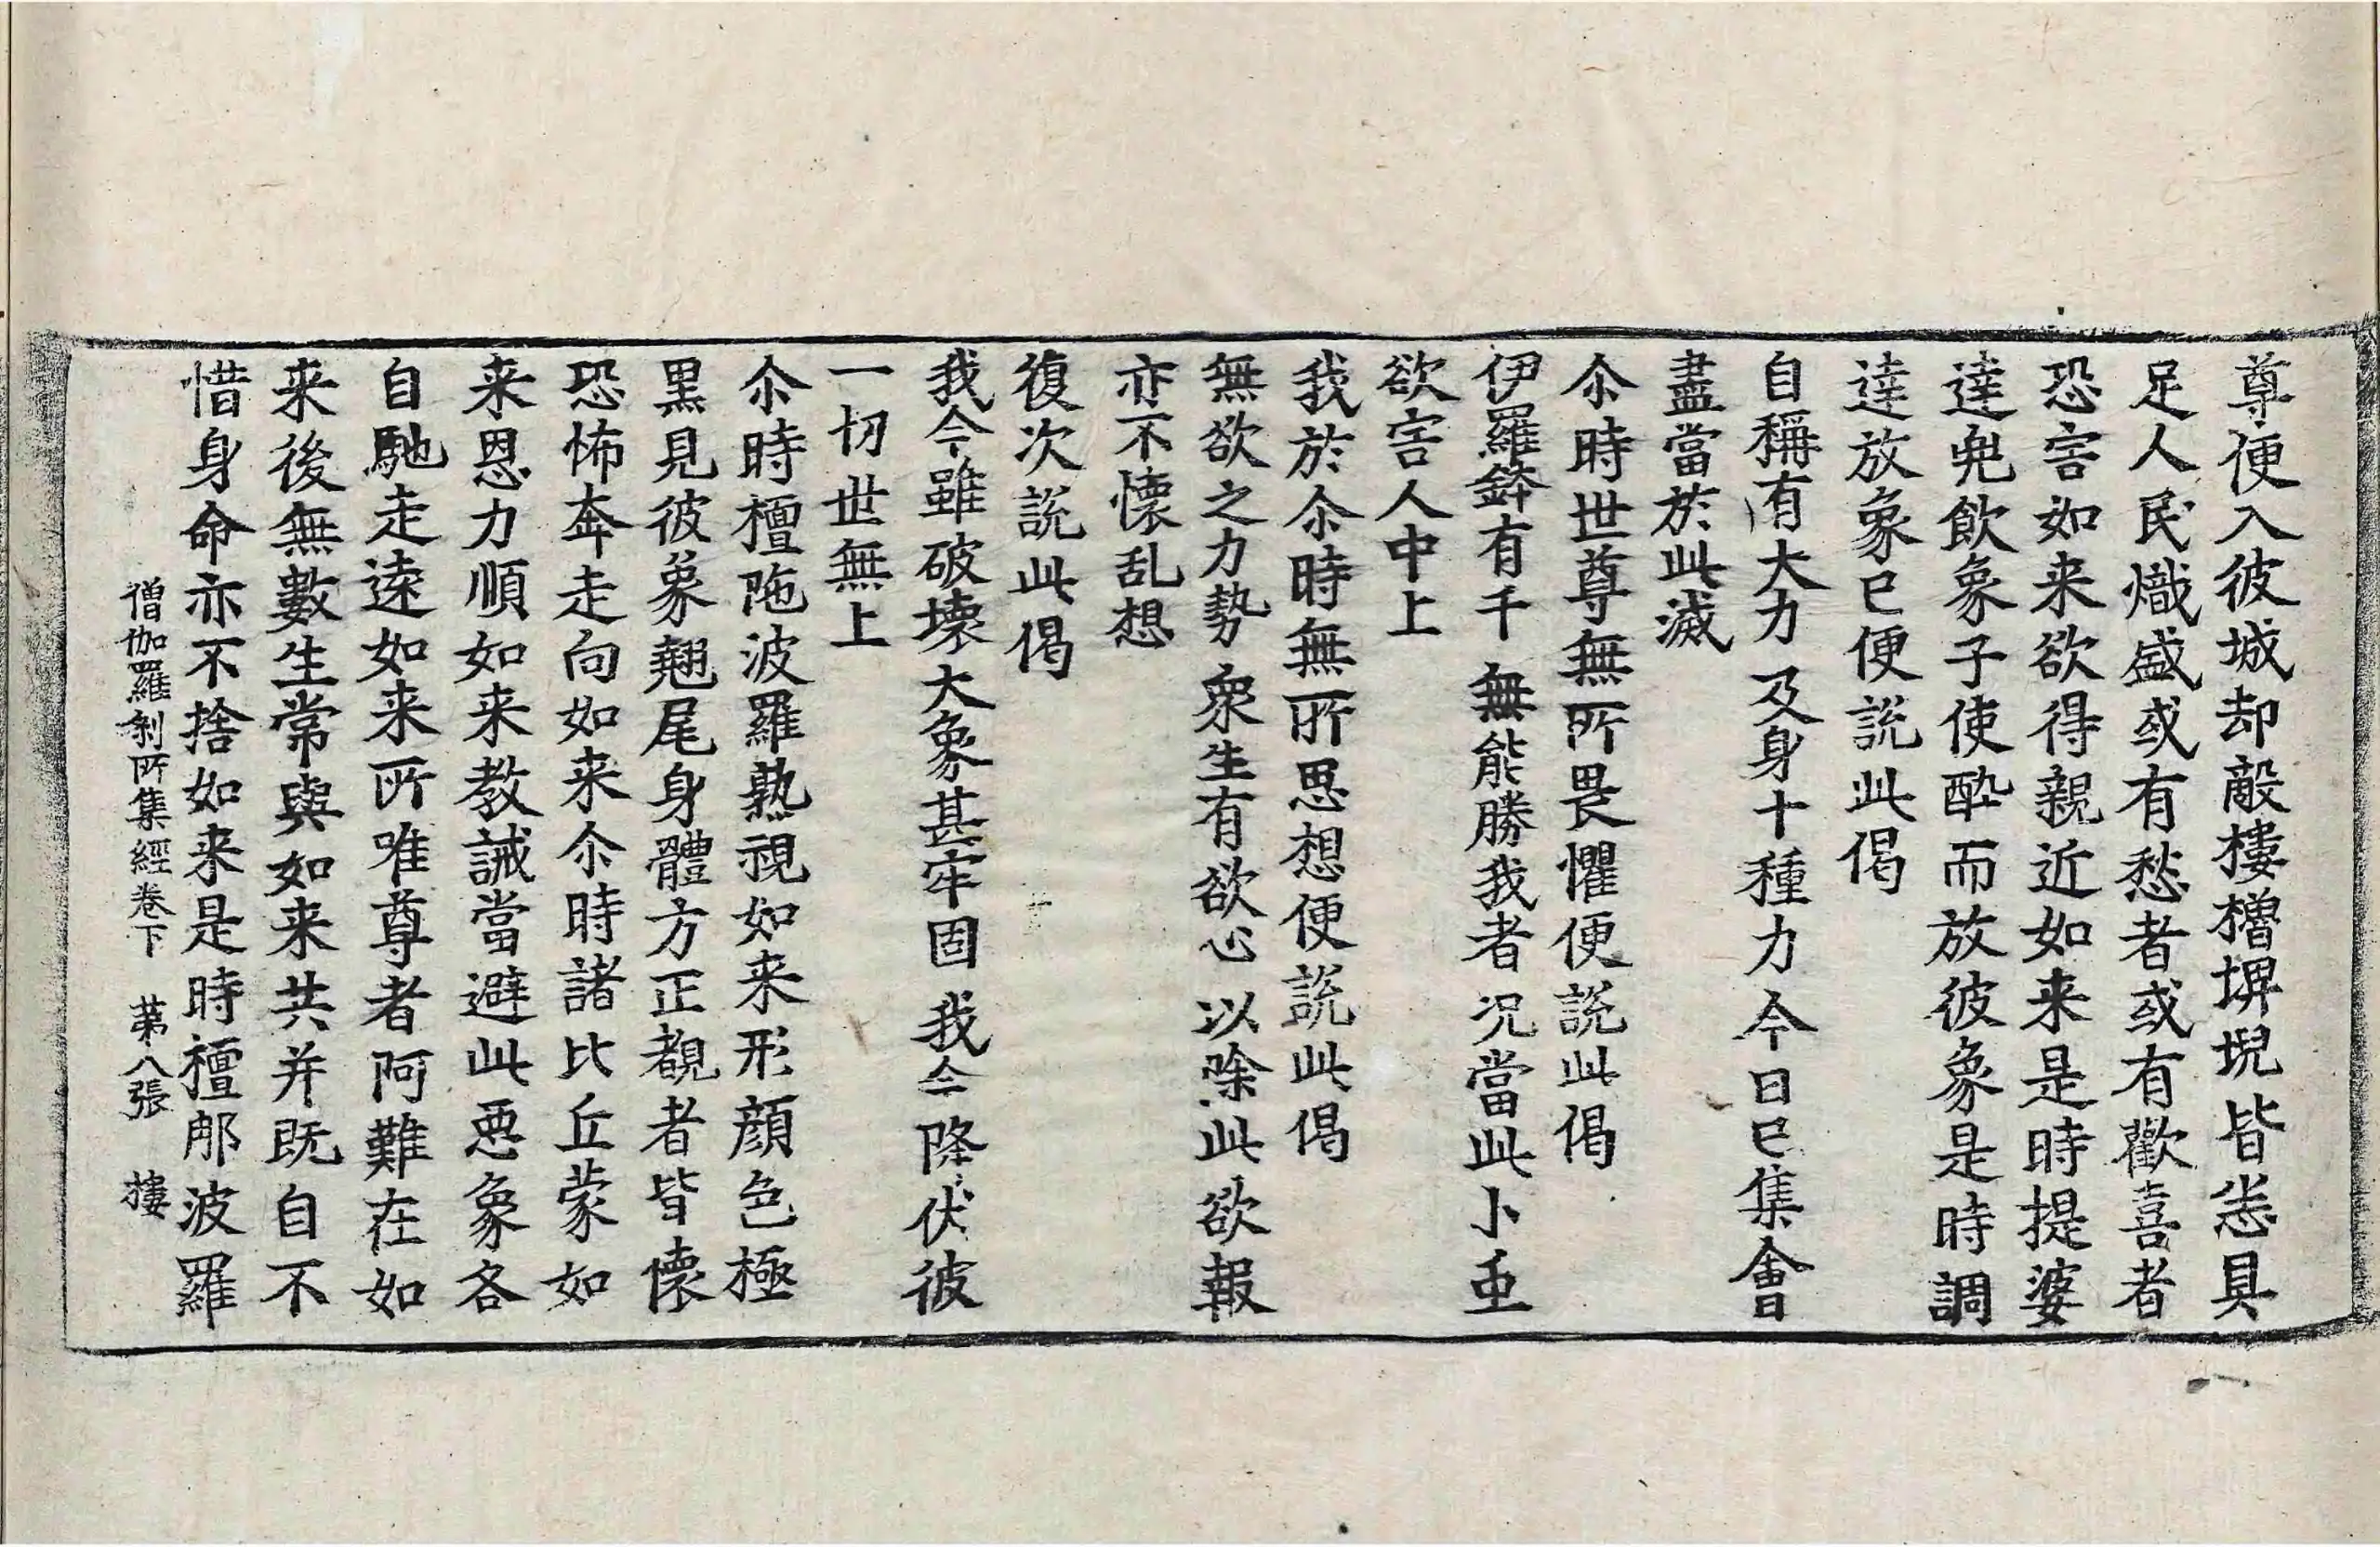 尊便入彼城却敵樓櫓埤堄皆悉具
足人民熾盛或有愁者或有歡喜者
恐害如来欲得親近如来是時提婆
達兜飲象子使酔而放彼象是時調
達放象已便說此偈
自稱有大力　及身十種力　今日已集會
盡當於此滅
尒時世尊無所畏懼便說此偈
伊羅鉢有千　無能勝我者　况當此小䖝
欲害人中上
我於尒時無所思想便說此偈
無欲之力勢　衆生有欲心　以除此欲報
亦不懷乱想
復次說此偈
我今雖破壞　大象甚牢固　我今降伏彼
一切世無上
尒時檀陁波羅熟視如来形顔色極
黒見彼象翹尾身體方正覩者皆懷
恐怖奔走向如来尒時諸比丘蒙如
来恩力順如来教誡當避此悪象各
自馳走遠如来所唯尊者阿難在如
来後無數生常與如来共并既自不
惜身命亦不捨如来是時檀那波羅
僧伽羅剎所集經卷下　苐八張　樓